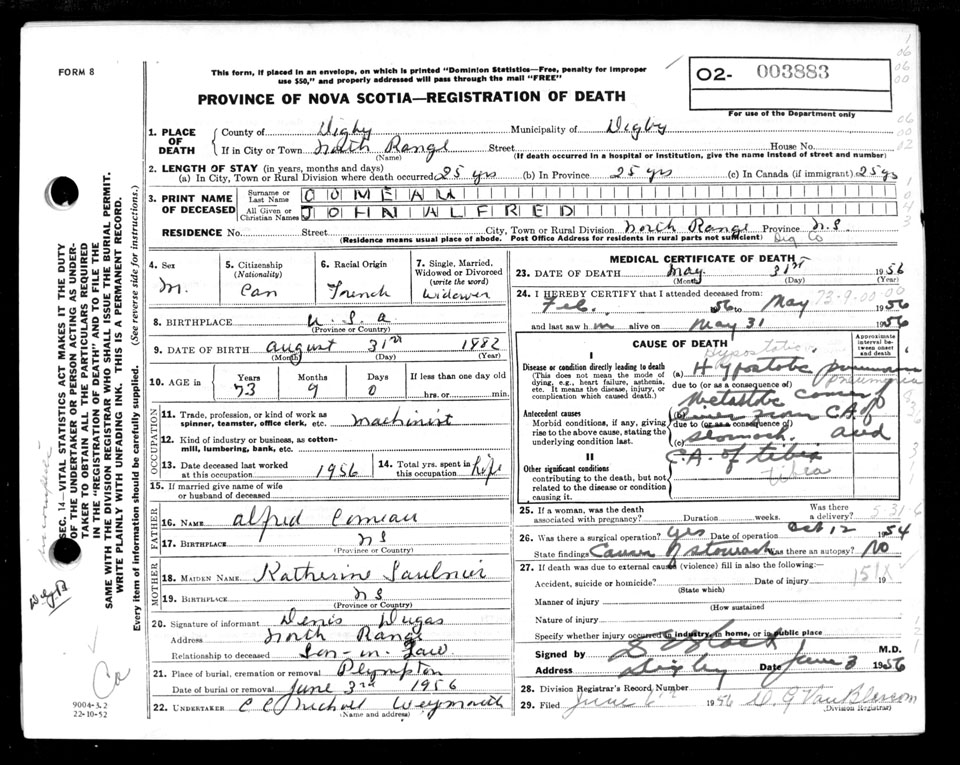 FORM 8
This form, if placed in an envelope, on which is printed "Dominion Statistics—Free, penalty for improper
use $50," and properly addressed will pass through the mail "FREE"
O2- 003883
For use of the Department only
PROVINCE OF NOVA SCOTIA—REGISTRATION OF DEATH
1. PLACE OF DEATH { County of Digby Municipality of Digby
If in City or Town North Range Street House No.
(Name) (If death occurred in a hospital or institution, give the name instead of street and number)
2. LENGTH OF STAY (in years, months and days)
(a) In City, Town or Rural Division where death occurred 25 yrs (b) In Province 25 yrs (c) In Canada (if immigrant) 25 yrs
3. PRINT NAME OF DECEASED { Surname or Last Name COMEAU
All Given or Christian Names JOHN ALFRED
RESIDENCE No. Street City, Town or Rural Division North Range Province N.S
(Residence means usual place of abode. Post Office Address for residents in rural parts not sufficient) Dig Co
4. Sex M.
5. Citizenship (Nationality) Can
6. Racial Origin French
7. Single, Married, Widowed or Divorced (write the word) Widower
8. BIRTHPLACE U.S.A
(Province or Country)
9. DATE OF BIRTH August 31st 1882
(Month) (Day) (Year)
10. AGE in Years 73 Months 9 Days 0 If less than one day old hrs. or min.
OCCUPATION
11. Trade, profession, or kind of work as
spinner, teamster, office clerk, etc. Machinist
12. Kind of industry or business, as cotton-
mill, lumbering, bank, etc.
13. Date deceased last worked
at this occupation 1956
14. Total yrs. spent in
this occupation Life
15. If married give name of wife
or husband of deceased
FATHER
16. NAME Alfred Comeau
17. BIRTHPLACE N S
(Province or Country)
MOTHER
18. MAIDEN NAME Katherine Saulnier
19. BIRTHPLACE N S
(Province or Country)
20. Signature of informant Denis Dugas
Address North Range
Relationship to deceased Son-in-Law
21. Place of burial, cremation or removal Plympton
Date of burial or removal June 3rd 1956
22. UNDERTAKER C C Nichols Weymouth
(Name and address)
MEDICAL CERTIFICATE OF DEATH
23. DATE OF DEATH May 31st 1956
(Month) (Day)
24. I HEREBY CERTIFY that I attended deceased from:
Feb. 56 to May 1956
73-9-00
and last saw him alive on May 31 1956
CAUSE OF DEATH
Approximate interval between onset and death
I
Disease or condition directly leading to death
(This does not mean the mode of
dying, e.g., heart failure, asthenia,
etc. It means the disease, injury, or
complication which caused death.)
(a) Hypostatic pneumonia
pneumonia
due to (or as a consequence of)
Antecedent causes
Morbid conditions, if any, giving
rise to the above cause, stating the
underlying condition last.
(b) liver from CA of
due to (or as a consequence of)
(c) stomach. and
II
Other significant conditions
contributing to the death, but not
related to the disease or condition
causing it.
C.A. of tibia
tibia
25. If a woman, was the death
associated with pregnancy? Duration weeks. Was there a delivery?
5-31-6
26. Was there a surgical operation? yes Date of operation Oct 12 1954
State findings Cancer of stomach Was there an autopsy? NO
27. If death was due to external causes (violence) fill in also the following:—
Accident, suicide or homicide? Date of injury 19
(State which)
151X
Manner of injury
(How sustained)
Nature of injury
Specify whether injury occurred in industry, in home, or in public place
Signed by M.D.
Address Digby Date June 3 1956
28. Division Registrar's Record Number
29. Filed June 6th 1956 D. J Van Blarcom
(Division Registrar)
SEC. 14—VITAL STATISTICS ACT MAKES IT THE DUTY
OF THE UNDERTAKER OR PERSON ACTING AS UNDER-
TAKER TO OBTAIN ALL THE PARTICULARS REQUIRED
IN THE "REGISTRATION OF DEATH" AND TO FILE THE
SAME WITH THE DIVISION REGISTRAR WHO SHALL ISSUE THE BURIAL PERMIT.
WRITE PLAINLY WITH UNFADING INK. THIS IS A PERMANENT RECORD.
Every item of information should be carefully supplied. (See reverse side for instructions.)
9004-3.2
22-10-52